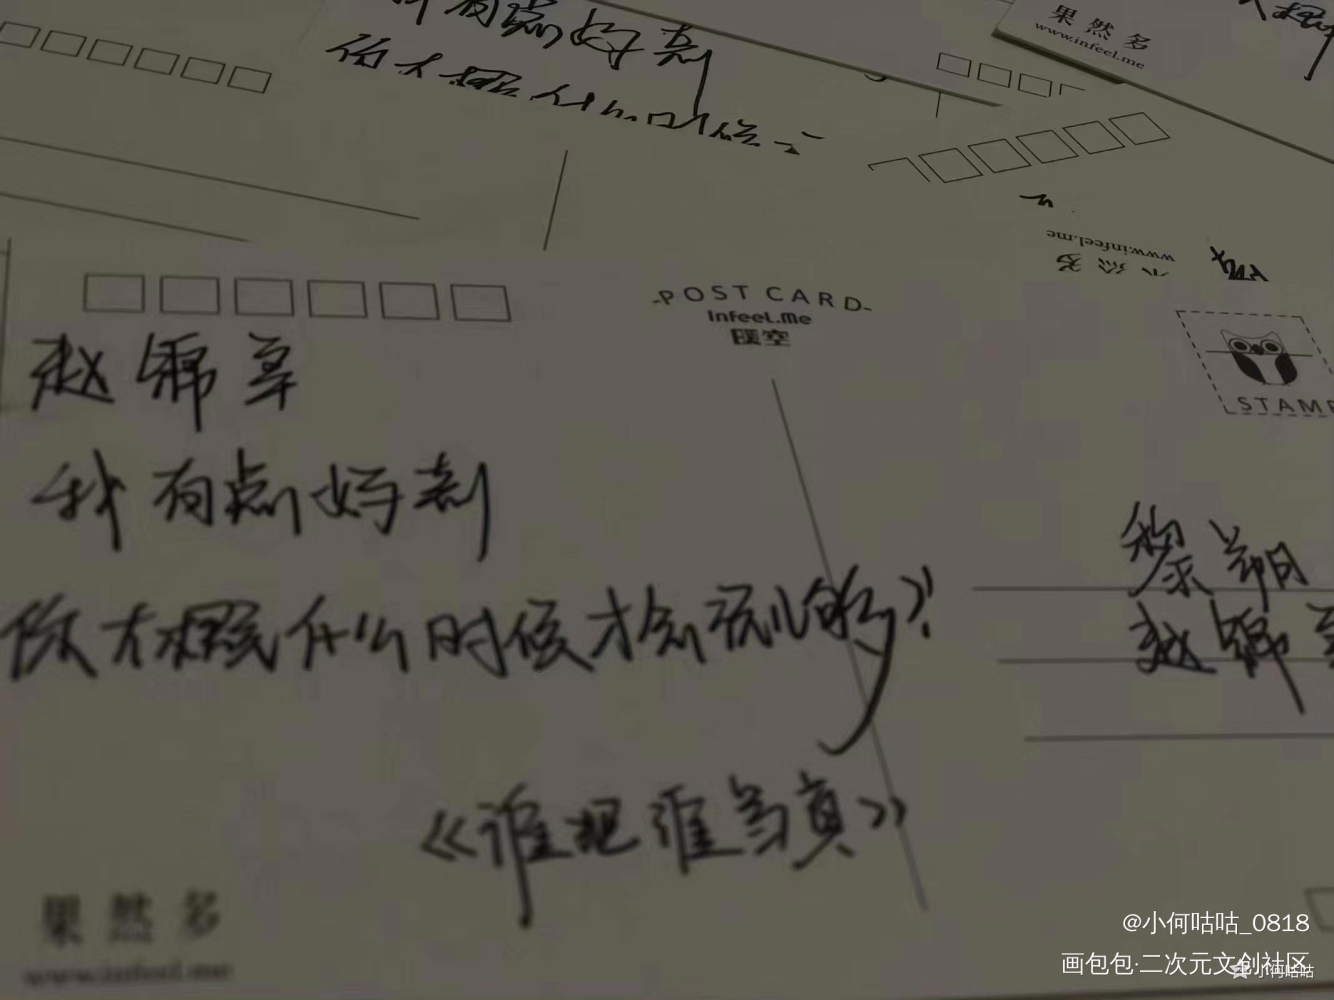 有点好剥
你大概什么时候
果然多
www.infeel.me
www.infeel.me
-POST CARD-
infeel.me
匯空
STAMP
赵锦辛
我有点好剥
你大概什么时候才会认的？！
黎朔
赵锦辛
《谁把谁当真》
果然多
www.infeel.me
@小何咕咕_0818
画包包·二次元文创社区
小何咕咕